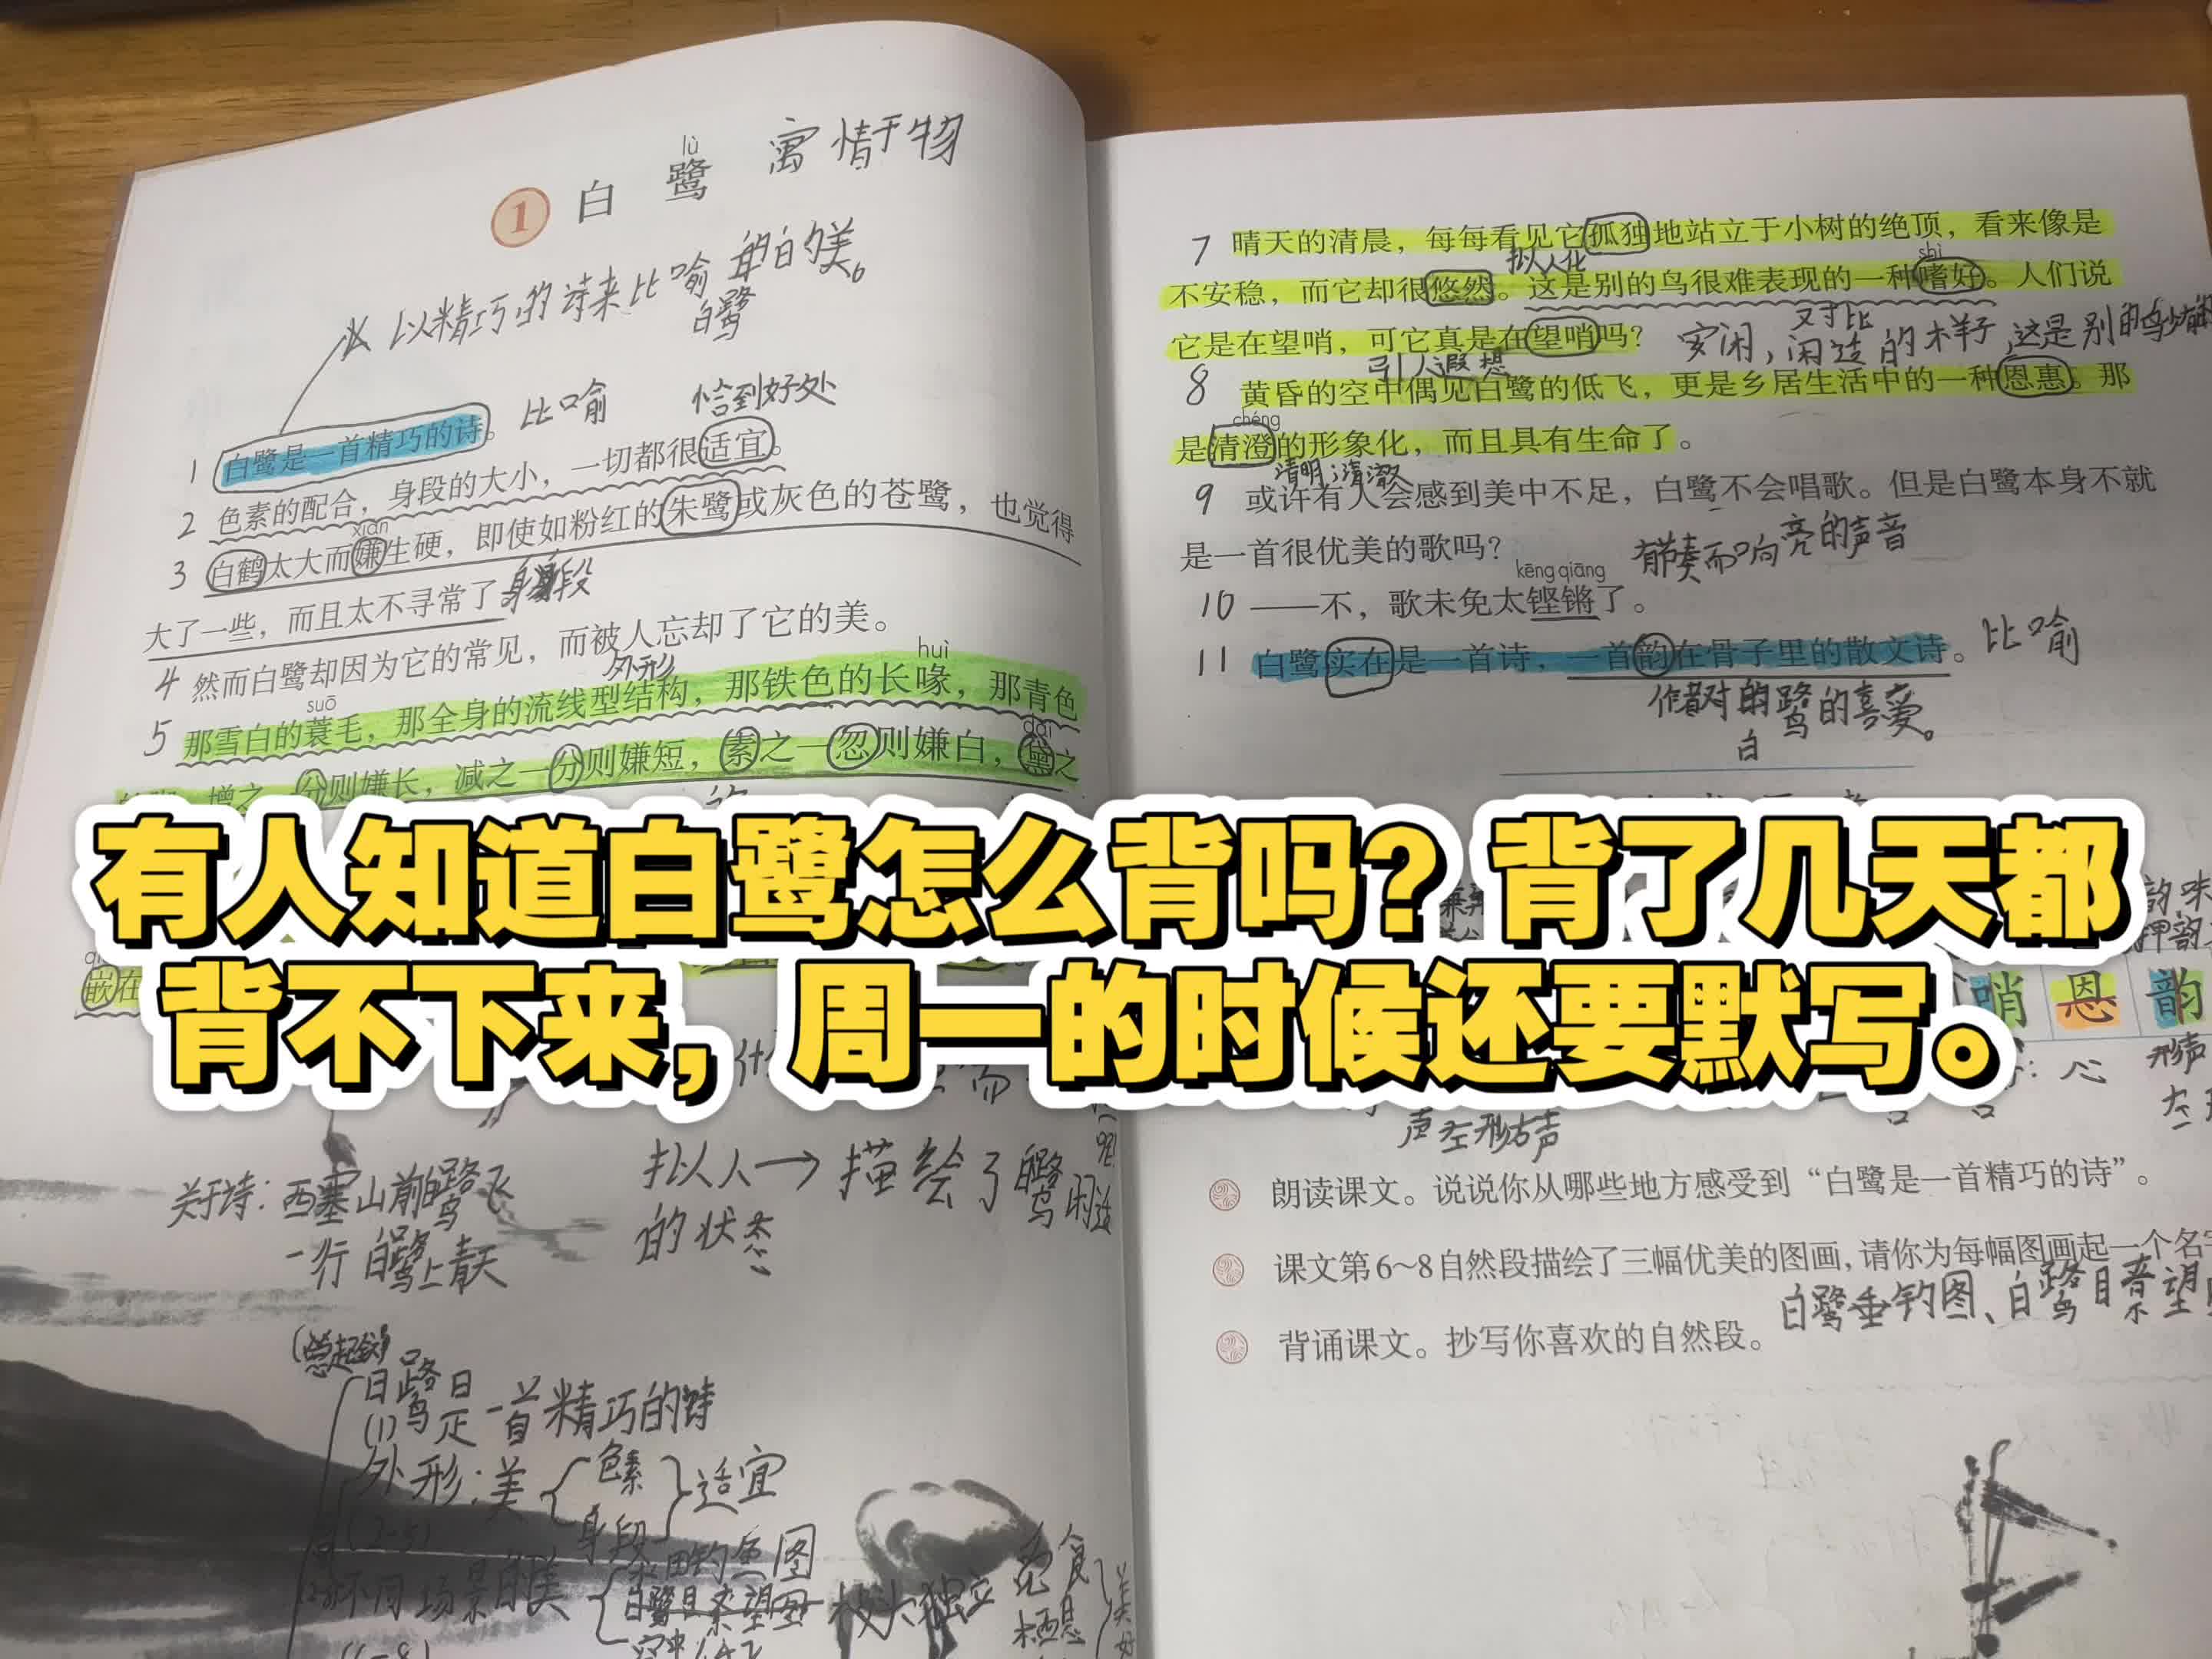 lù
① 白鹭 寓情于物
以精巧的诗来比喻白鹭的美。
比喻 恰到好处
1 白鹭是一首精巧的诗。
2 色素的配合，身段的大小，一切都很适宜。
xián
3 白鹤太大而嫌生硬，即使如粉红的朱鹭或灰色的苍鹭，也觉得
大了一些，而且太不寻常了 身段
4 然而白鹭却因为它的常见，而被人忘却了它的美。
外形
suō huì
5 那雪白的蓑毛，那全身的流线型结构，那铁色的长喙，那青色
dài
增之一分则嫌长，减之一分则嫌短，素之一忽则嫌白，黛之
嵌在
有人知道白鹭怎么背吗？背了几天都
背不下来，周一的时候还要默写。
关于诗：西塞山前白鹭飞
一行白鹭上青天
拟人→描绘了白鹭
的状态
白鹭是一首精巧的诗
(1)
外形：美 色素 身段 适宜
钓鱼图
不同场景的美 白鹭 望图 枝头独立
7 晴天的清晨，每每看见它孤独地站立于小树的绝顶，看来像是
拟人化 shì
不安稳，而它却很悠然。这是别的鸟很难表现的一种嗜好。人们说
它是在望哨，可它真是在望哨吗？ 安闲，闲适的样子 对比 这是别的鸟
引人遐想
8 黄昏的空中偶见白鹭的低飞，更是乡居生活中的一种恩惠。那
chéng
是清澄的形象化，而且具有生命了。
清明；清澈
9 或许有人会感到美中不足，白鹭不会唱歌。但是白鹭本身不就
是一首很优美的歌吗？
有节奏而响亮的声音
kēng qiāng
10 ——不，歌未免太铿锵了。
11 白鹭实在是一首诗，一首韵在骨子里的散文诗。 比喻
作者对白鹭的喜爱。
韵味
押韵
哨 恩 韵
心 形声
声 左形右声
朗读课文。说说你从哪些地方感受到“白鹭是一首精巧的诗”。
课文第6~8自然段描绘了三幅优美的图画，请你为每幅图画起一个名
白鹭垂钓图、白鹭 望
背诵课文。抄写你喜欢的自然段。